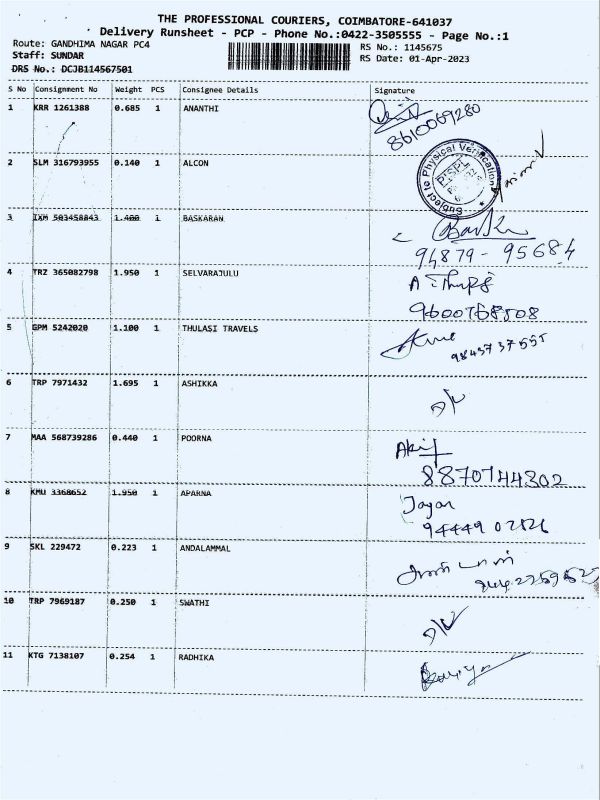 THE PROFESSIONAL COURIERS, COIMBATORE-641037
Delivery Runsheet - PCP - Phone No.:0422-3505555 - Page No.:1
Route: GANDHIMA NAGAR PC4
RS No.: 1145675
Staff: SUNDAR
RS Date: 01-Apr-2023
DRS No.: DCJB114567501
S No Consignment No Weight PCS Consignee Details Signature
1 KRR 1261388 0.685 1 ANANTHI
8610069280
2 SLM 316793955 0.140 1 ALCON
Subject to Physical Verification
3 IXM 503458843 1.400 1 BASKARAN
94879-95684
4 TRZ 365082798 1.950 1 SELVARAJULU
9600768508
5 GPM 5242020 1.100 1 THULASI TRAVELS
6 TRP 7971432 1.695 1 ASHIKKA
7 MAA 568739286 0.440 1 POORNA
8870744302
8 KMU 3368652 1.950 1 APARNA
Jayan
9 SKL 229472 0.223 1 ANDALAMMAL
10 TRP 7969187 0.250 1 SWATHI
11 KTG 7138107 0.254 1 RADHIKA